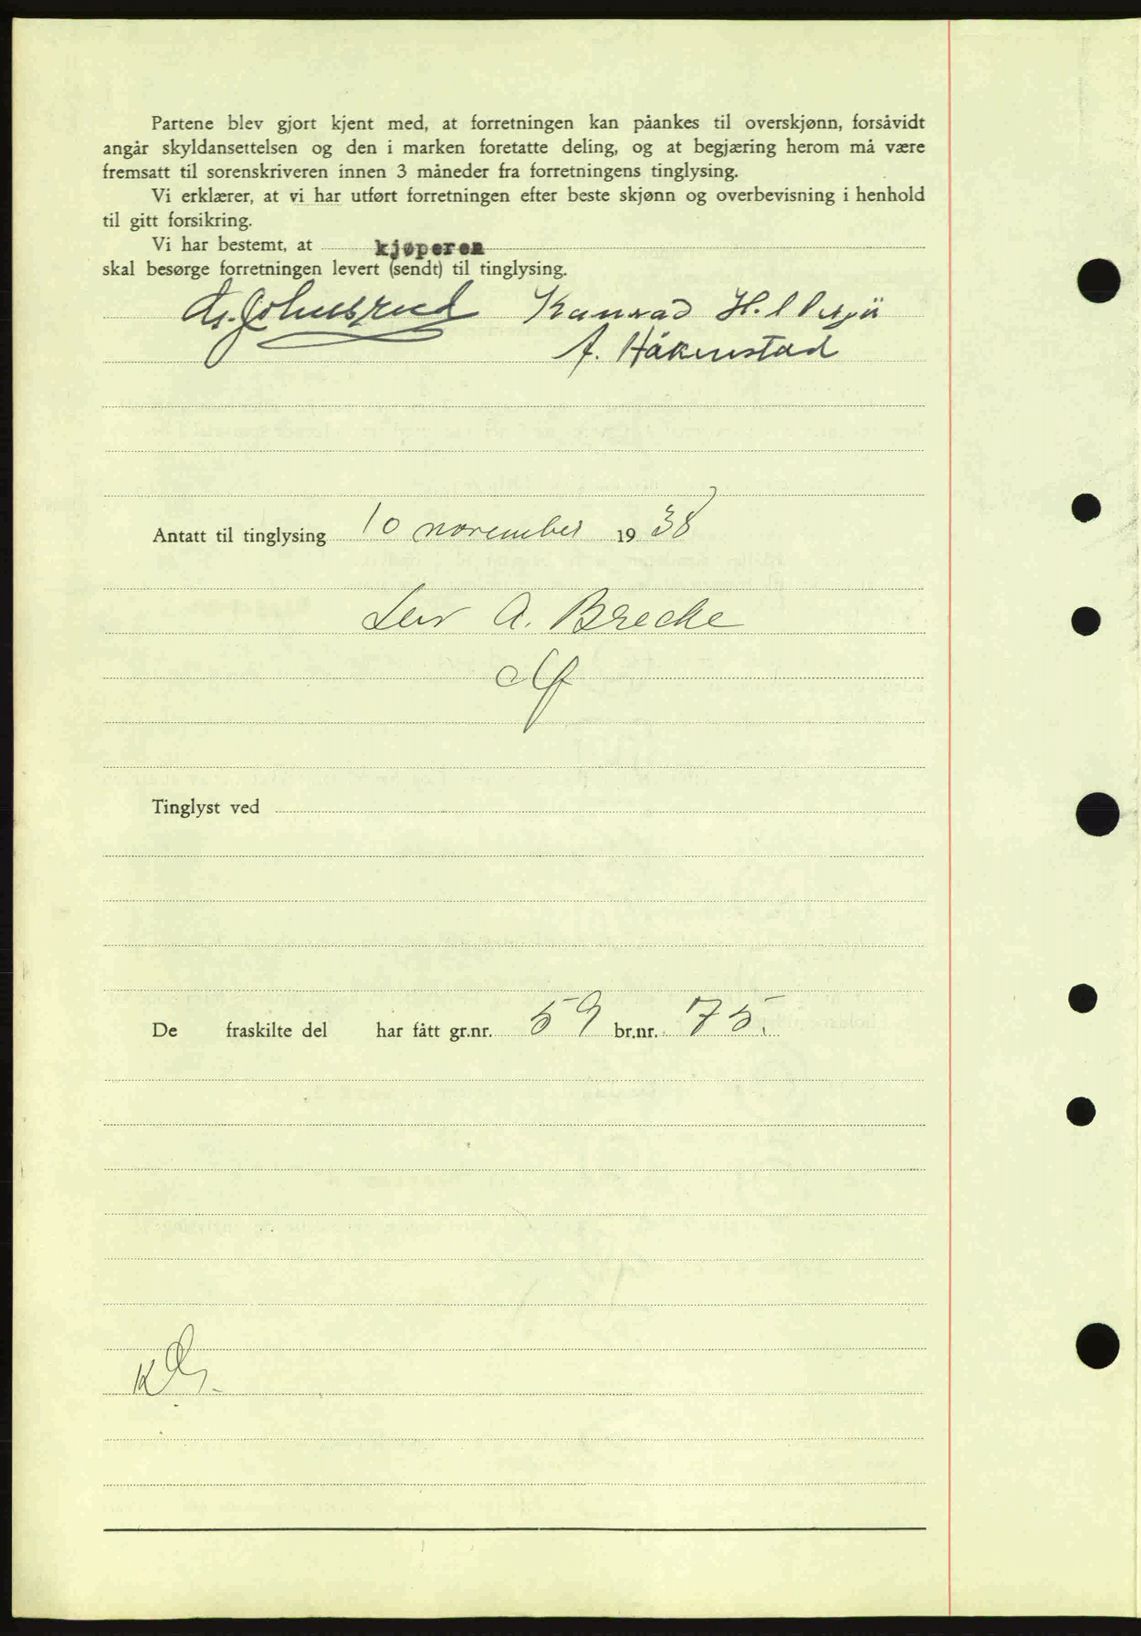 Partene blev gjort kjent med, at forretningen kan påankes til overskjønn, forsåvidt
angår skyldansettelsen og den i marken foretatte deling, og at begjæring herom må være
fremsatt til sorenskriveren innen 3 måneder fra forretningens tinglysing.
Vi erklærer, at vi har utført forretningen efter beste skjønn og overbevisning i henhold
til gitt forsikring.
Vi har bestemt, at kjøperen
skal besørge forretningen levert (sendt) til tinglysing.
Johnsrud Konrad H.
A. Håkenstad
Antatt til tinglysing 10 november 1938
Leiv A. Brecke
Tinglyst ved
De fraskilte del har fått gr.nr. 59 br.nr. 75.